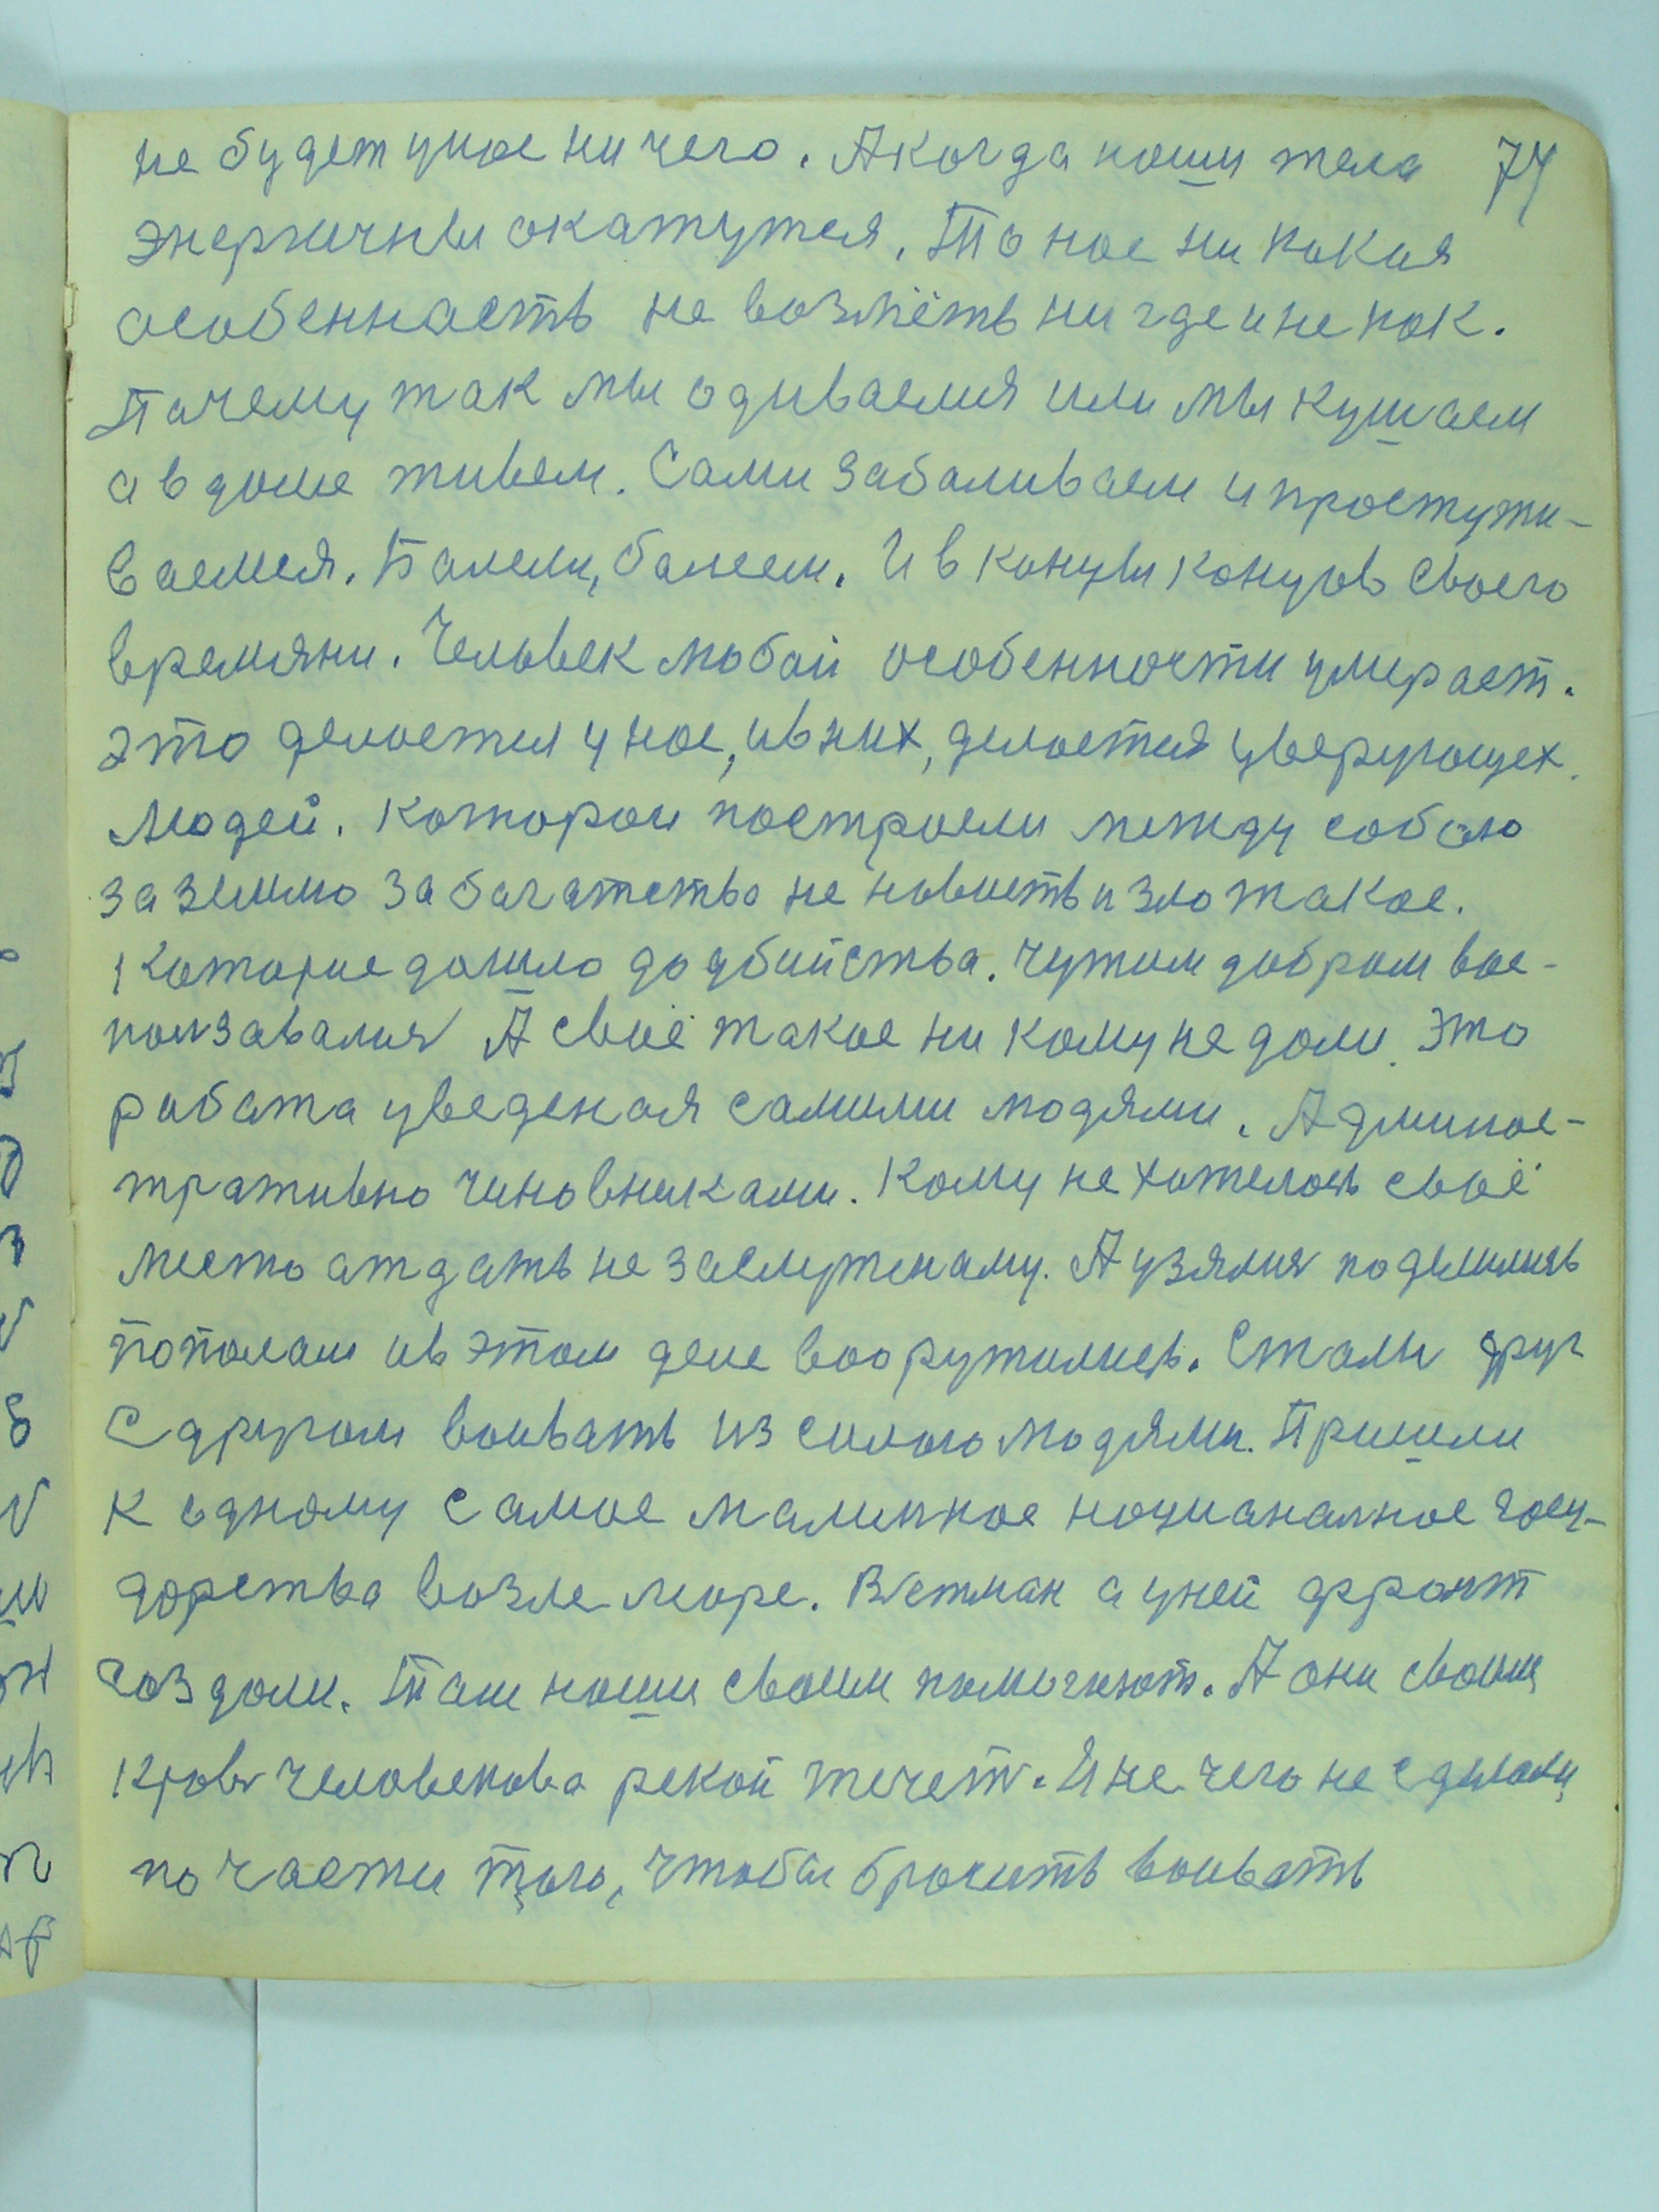 не будет унас ни чего. А когда наши тела 74
энергичны окажутся. То нас ни какая
особенность не возметь ни где и не как.
Почему так мы одиваемся или мы кушаем
а в доме живем. Сами забаливаем и простужи-
ваемся. Балели, балеем. И в концы концов своего
времяни. Человек любой особенности умирает.
Это делается у нас, ив них, делается уверующех
людей. Которои построели между собою
за землю за багатство не нависть и зло такое.
Которие дошло до убийства. Чужим добром вос-
ползавался А своё такое ни кому не дали. Это
работа уведеная самими людями. Админис-
тративно чиновниками. Кому не хотелось своё
место атдать не заслуженаму. А узялися поделились
пополам ив этом деле вооружились. Стали друг
С другом воивать из силою людями. Пришли
к одному самое маленкое нацианалное госу-
дарства возле море. Вьетман а уней фронт
создали. Там наши своим помогают. А они своим
Кровь человекова рекой течеть. И не чего не сделали,
по части того, чтобы бросить воивать